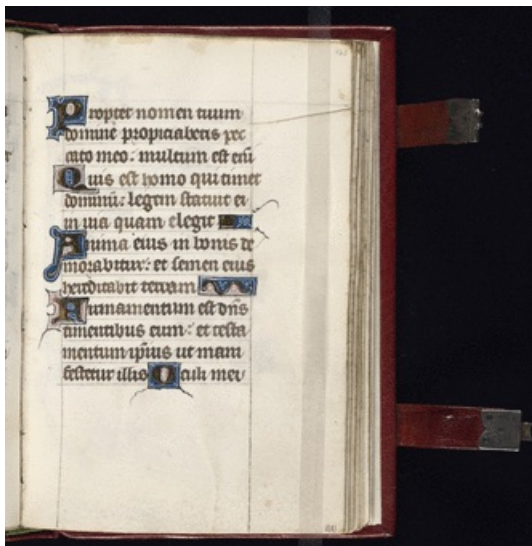 Propter nomen tuum
domine propiciaberis pec
cato meo: multum est eni
Quis est homo qui timet
dominu: legem statuit ei
in via quam elegit
Anima eius in bonis de
morabitur: et semen eius
hereditabit terram
Firmamentum est dns
timentibus eum: et testa
mentum ipsius ut mani
festetur illis Oculi mei